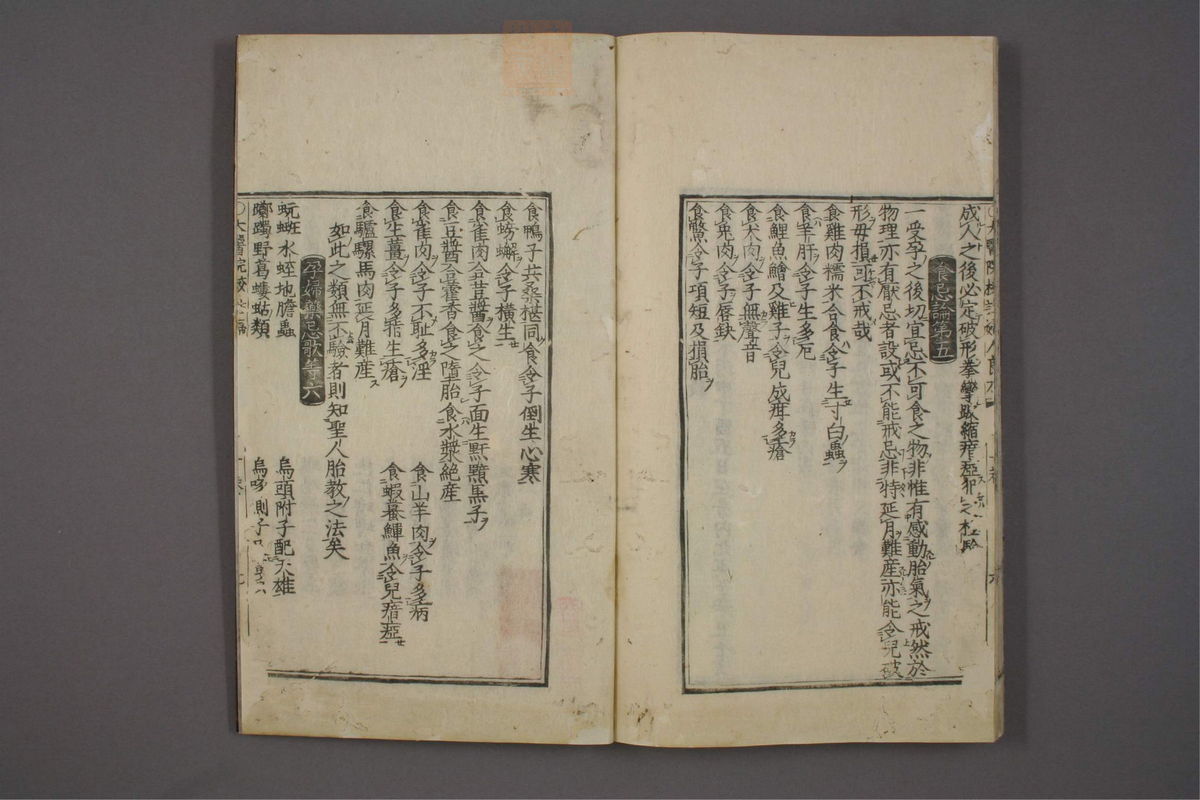 成人之後必定破形拳攣跛縮瘖瘂
食忌論第五
一受孕之後切宜忌不可食之物非惟有感動胎氣之戒然於
物理亦有厭忌者設或不能戒忌非特延月難産亦能令兒破
形母損可不戒哉
食雞肉糯米合食令子生寸白蟲
食羊肝令子生多厄
食鯉魚鱠及雞子令兒成疳多瘡
食犬肉令子無聲音
食兎肉令子唇缺
食鱉令子項短及損胎
食鴨子共桑椹同食令子倒生心寒
食螃蠏令子横生
食雀肉合豆醬食之令子面生䵟黵黒子
食豆醬合藿香食之墮胎 食水漿絶産
食雀肉令子不耻多淫 食山羊肉令子多病
食生薑令子多指生瘡 食蝦蟇鱓魚令兒瘖瘂
食驢騾馬肉延月難産
如此之類無不驗者則知聖人胎教之法矣
孕婦藥忌歌第六
蚖蝬水蛭地膽蟲 烏頭附子配天雄
躑躅野葛螻蛄類 烏喙側子